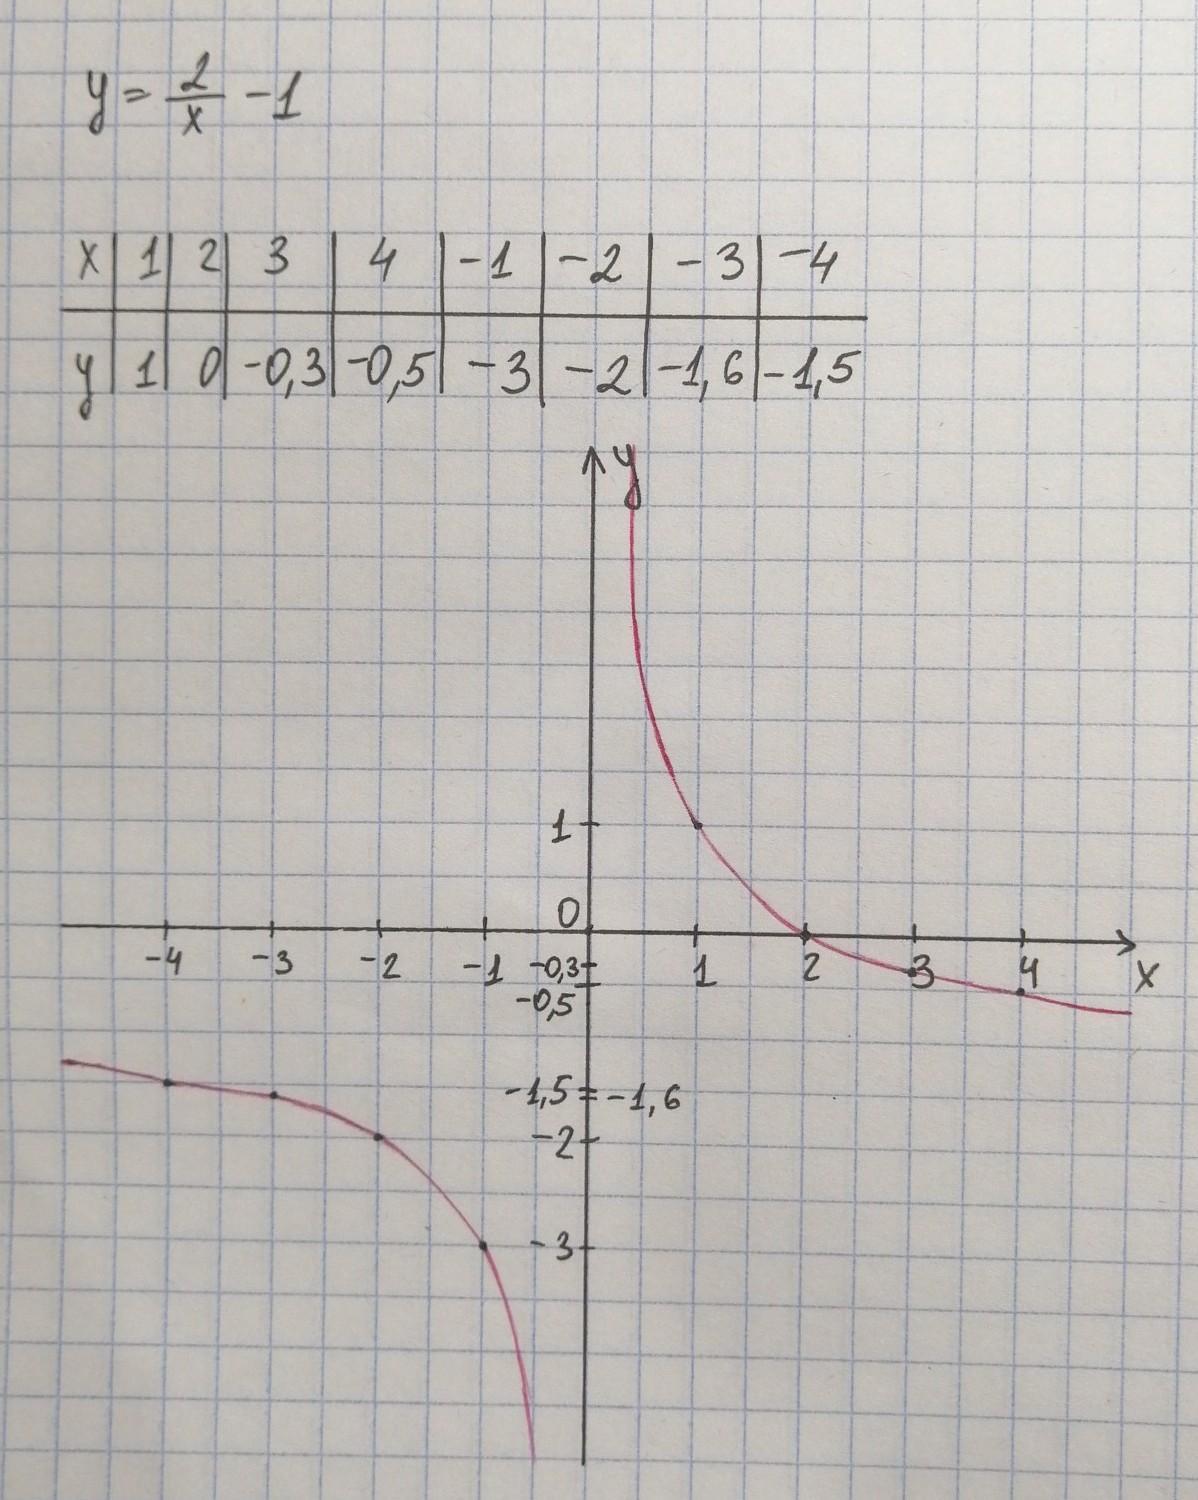 y = 2/x - 1
x | 1 | 2 | 3 | 4 | -1 | -2 | -3 | -4
y | 1 | 0 | -0,3 | -0,5 | -3 | -2 | -1,6 | -1,5
y
1
0
-4 -3 -2 -1 -0,3 1 2 3 4 x
-0,5
-1,5 -1,6
-2
-3